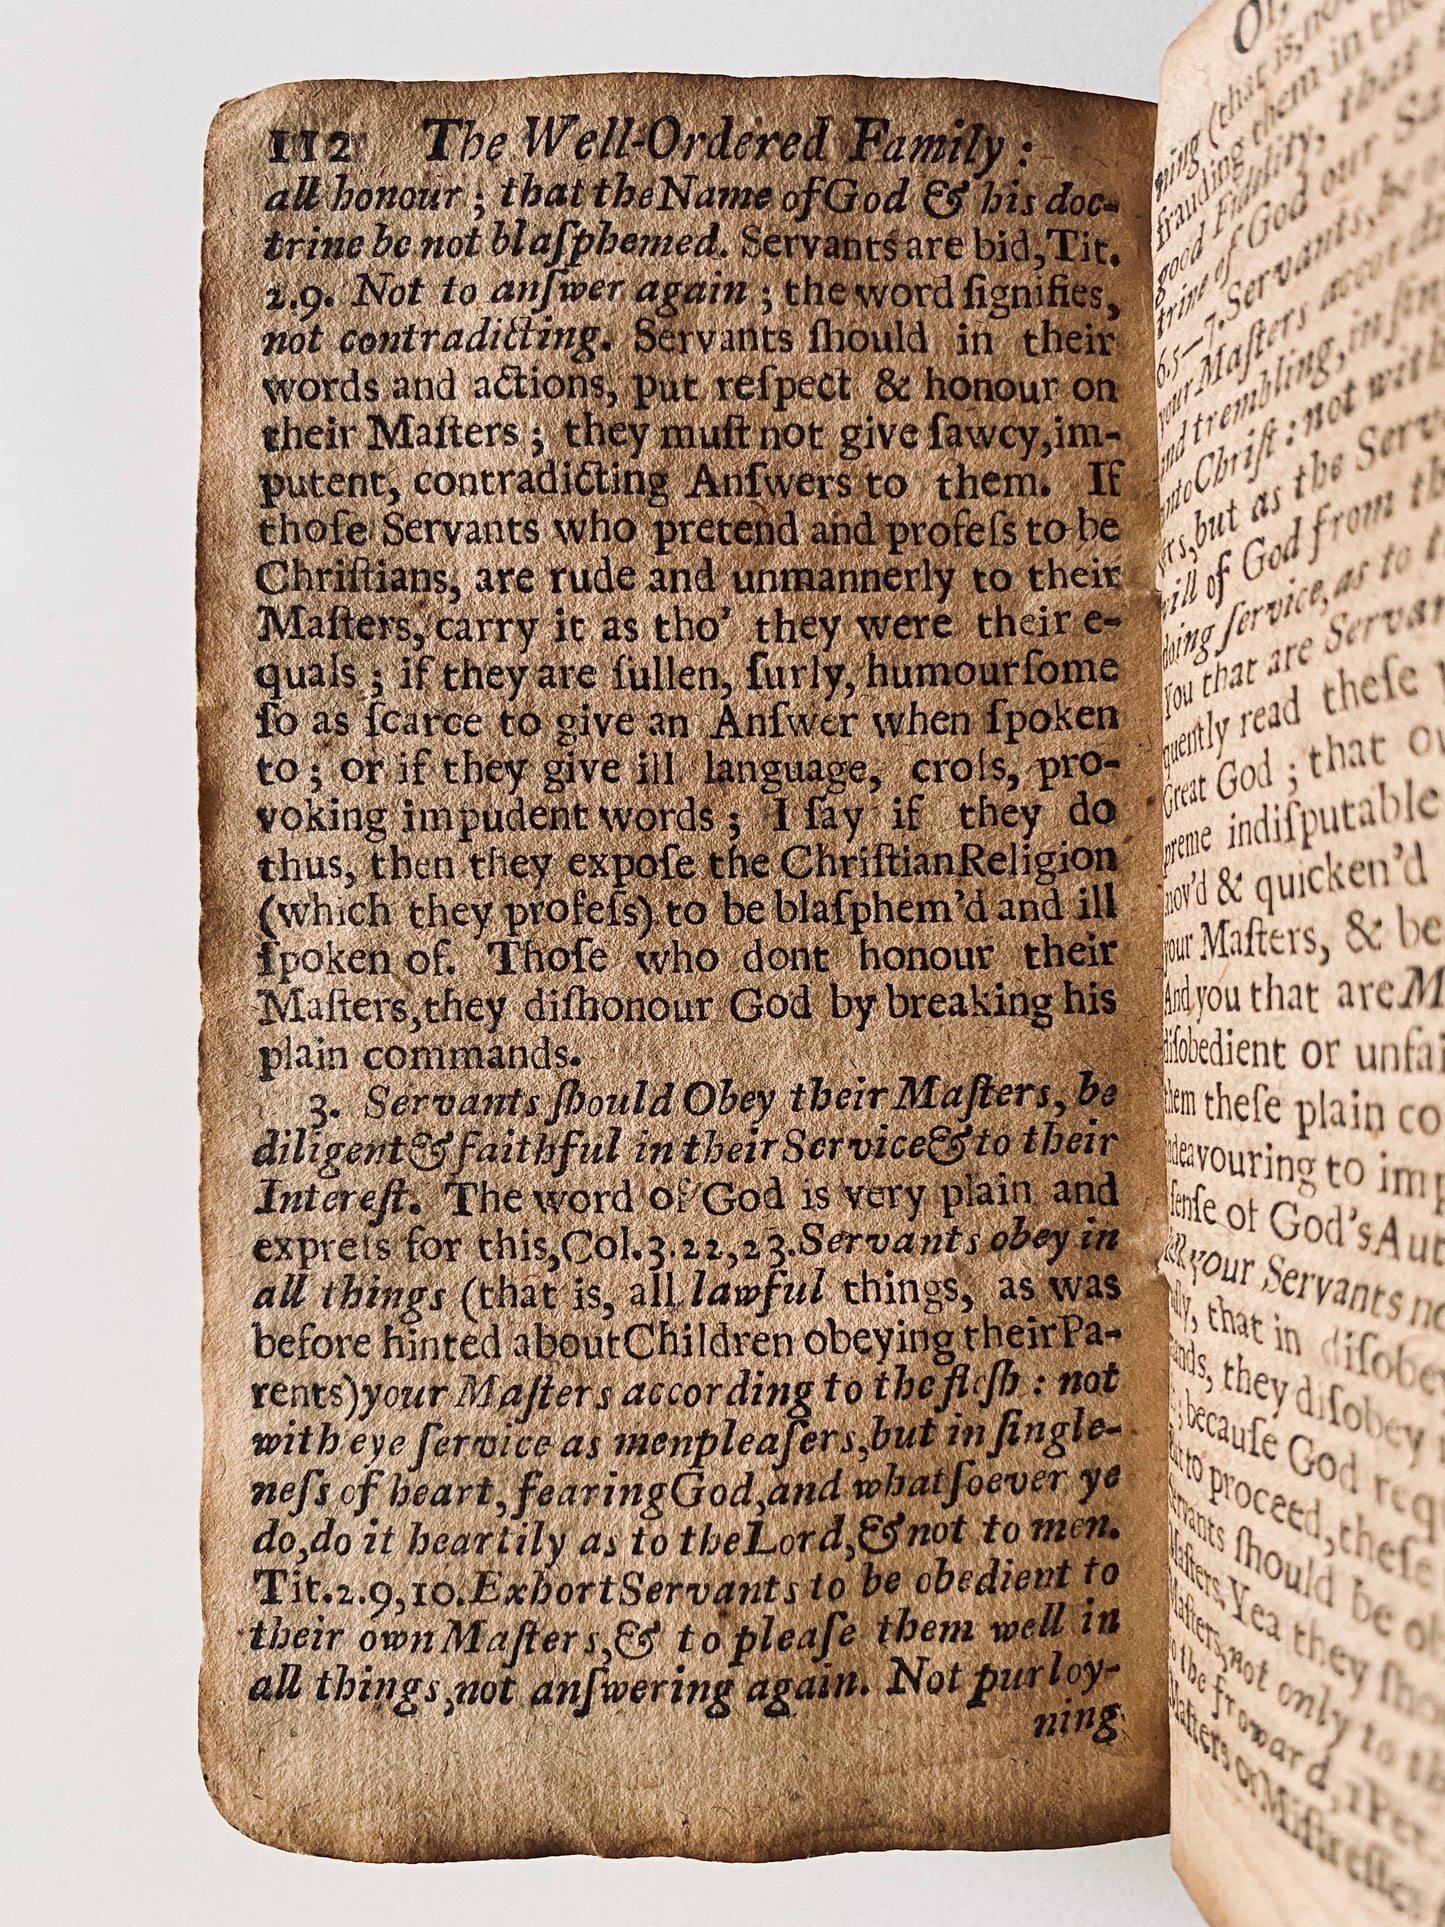 112 The Well-Ordered Family :
all honour ; that the Name of God & his doc-
trine be not blaſphemed. Servants are bid, Tit.
2.9. Not to anſwer again ; the word ſignifies,
not contradicting. Servants ſhould in their
words and actions, put reſpect & honour on
their Maſters ; they muſt not give ſawcy, im-
putent, contradicting Anſwers to them. If
thoſe Servants who pretend and profeſs to be
Chriſtians, are rude and unmannerly to their
Maſters, carry it as tho' they were their e-
quals ; if they are ſullen, ſurly, humourſome
ſo as ſcarce to give an Anſwer when ſpoken
to ; or if they give ill language, croſs, pro-
voking impudent words ; I ſay if they do
thus, then they expoſe the Chriſtian Religion
(which they profeſs) to be blaſphem'd and ill
ſpoken of. Thoſe who dont honour their
Maſters, they diſhonour God by breaking his
plain commands.
3. Servants ſhould Obey their Maſters, be
diligent & faithful in their Service & to their
Intereſt. The word of God is very plain and
expreſs for this, Col. 3. 22, 23. Servants obey in
all things (that is, all lawful things, as was
before hinted about Children obeying their Pa-
rents) your Maſters according to the fleſh : not
with eye ſervice as menpleaſers, but in ſingle-
neſs of heart, fearing God, and whatſoever ye
do, do it heartily as to the Lord, & not to men.
Tit. 2. 9, 10. Exhort Servants to be obedient to
their own Maſters, & to pleaſe them well in
all things, not anſwering again. Not purloy-
ning
Or,
ning (that is, not
frauding them in the
good Fidelity, that
trine of God our Sa
6. 5—7. Servants, be
your Maſters accord
and trembling, in ſin
unto Chriſt : not with
but as the Serv
will of God from th
doing ſervice, as to t
You that are Servan
quently read theſe
Great God ; that ou
preme indiſputable
mov'd & quicken'd
your Maſters, & be
And you that are M
diſobedient or unfai
them theſe plain co
endeavouring to imp
ſenſe of God's Aut
tell your Servants no
that in diſobey
mands, they diſobey
becauſe God requ
But to proceed, theſe
Servants ſhould be ob
Maſters. Yea they ſho
Maſters, not only to th
to the froward, 1 Pet.
Maſters or Miſtreſſes